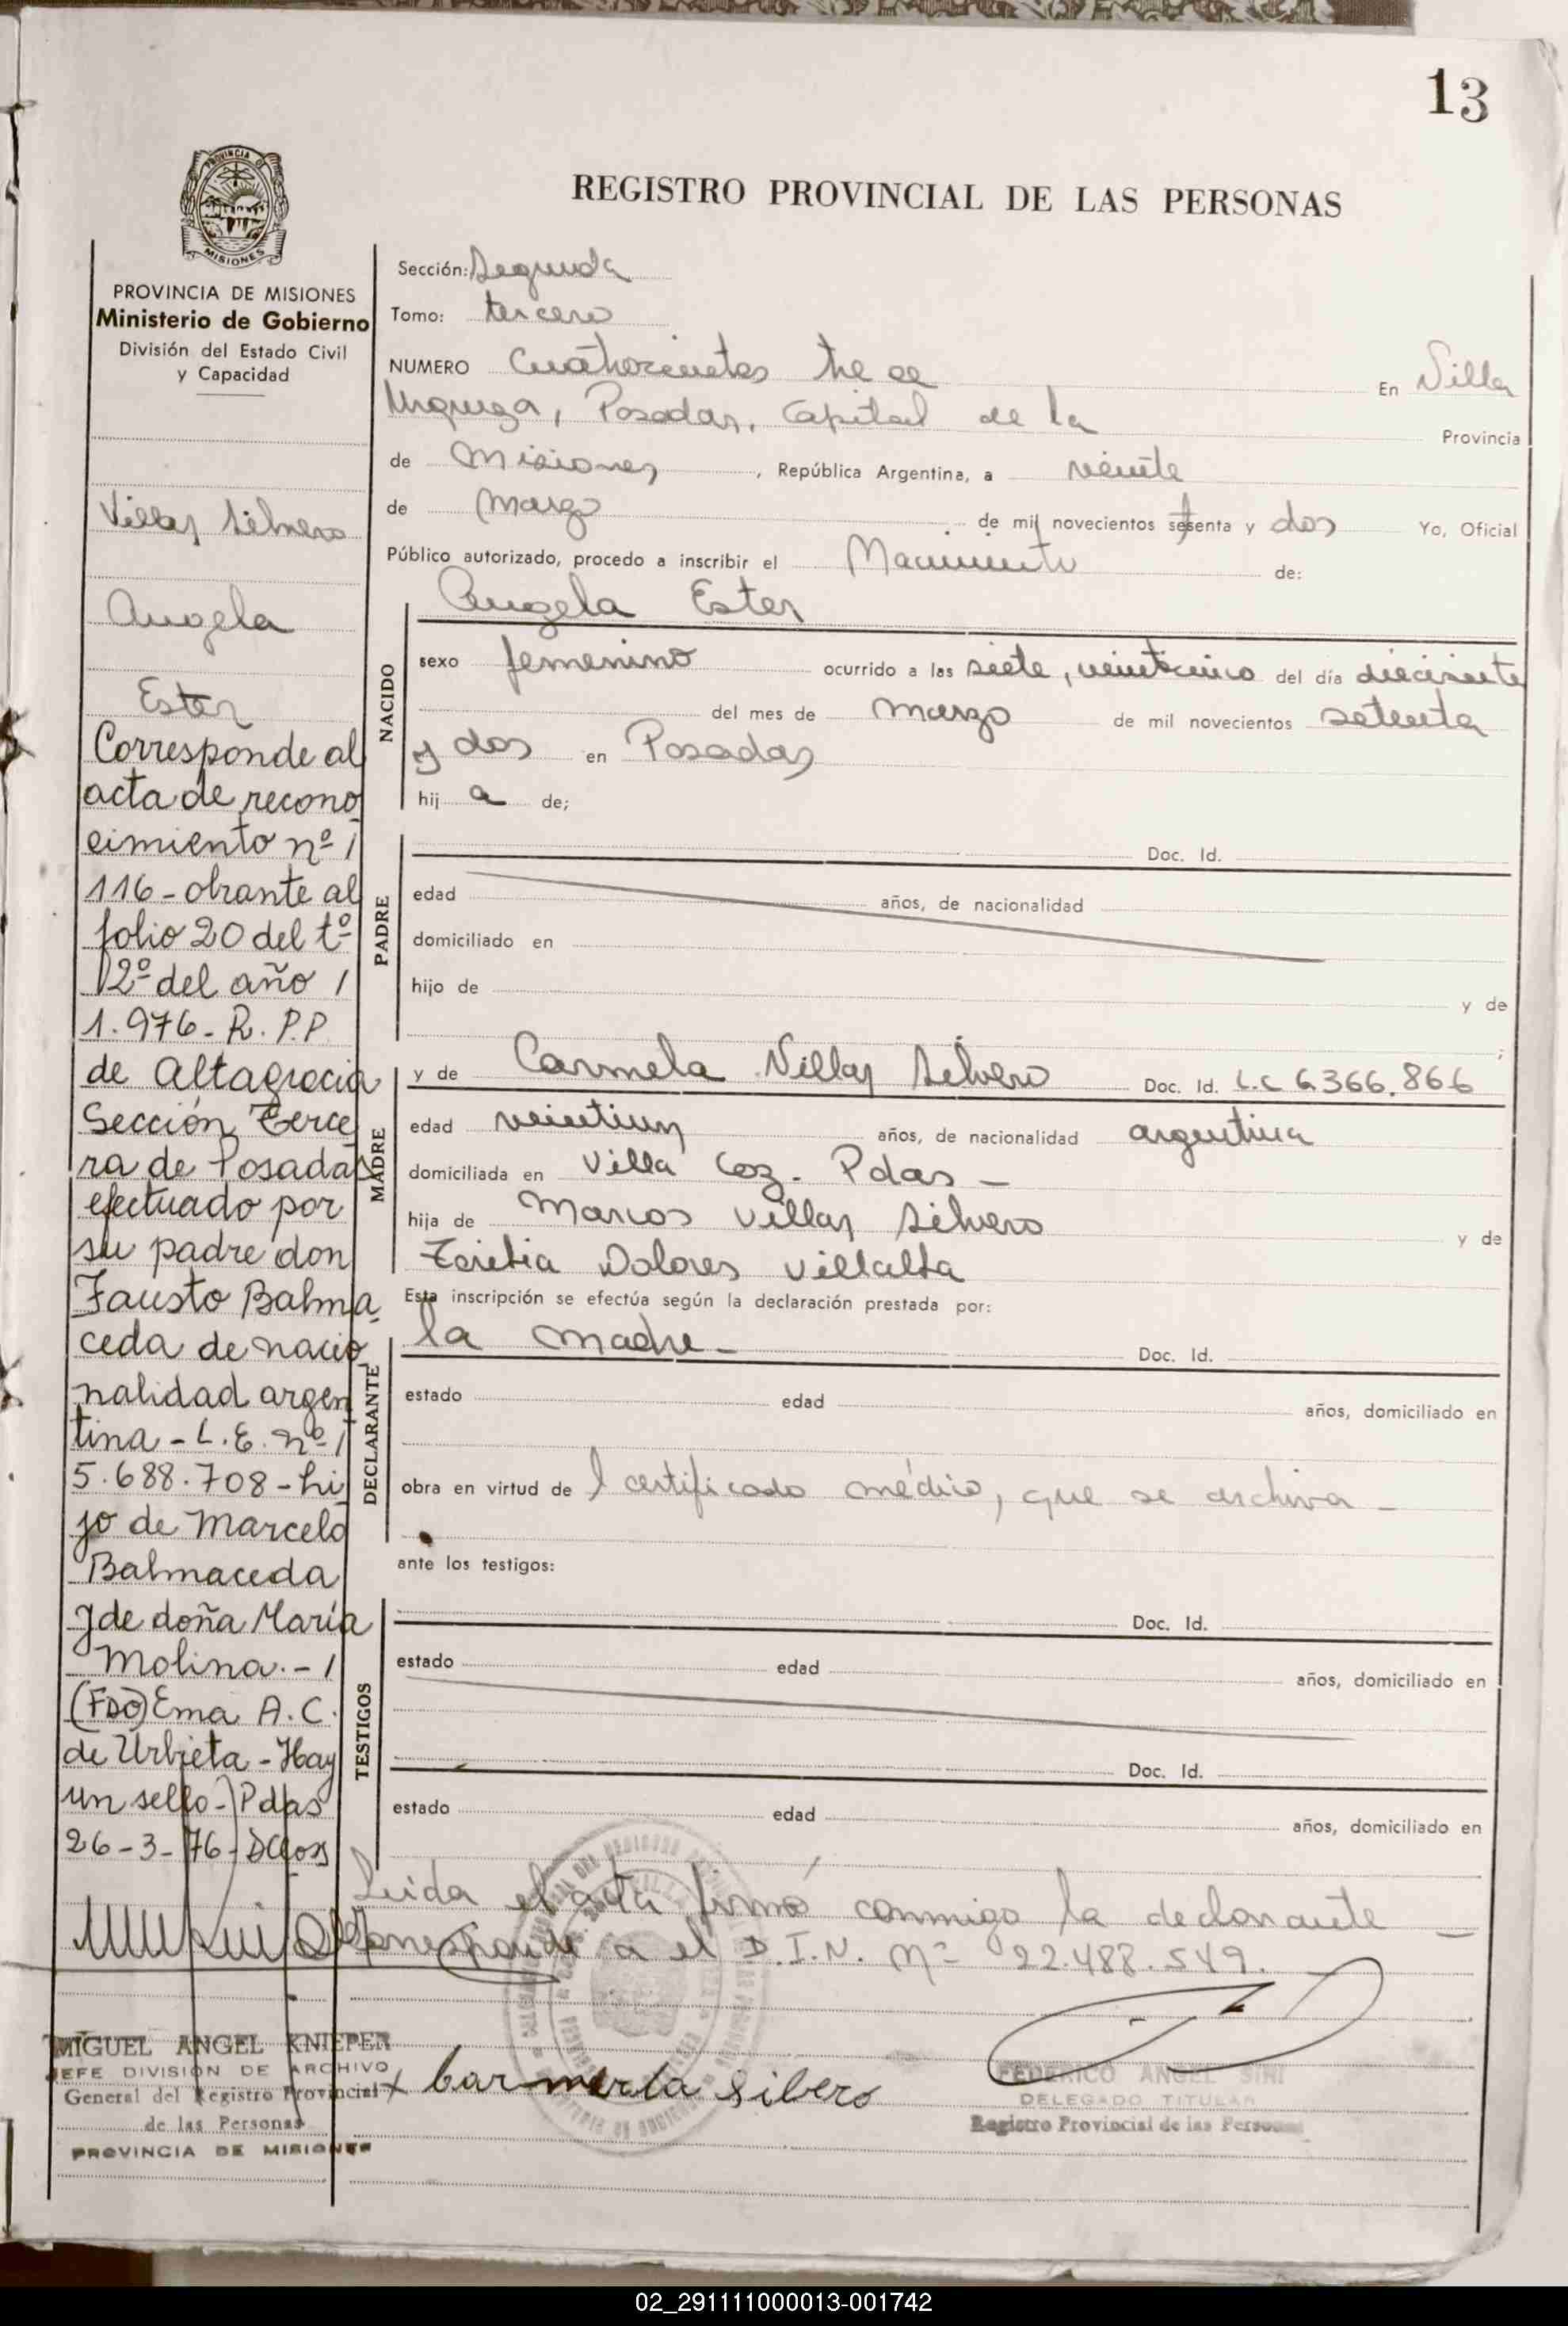 13
PROVINCIA D
MISIONES
REGISTRO PROVINCIAL DE LAS PERSONAS
PROVINCIA DE MISIONES
Ministerio de Gobierno
División del Estado Civil
y Capacidad
Villar Silvero
Angela
Ester
Corresponde al
acta de recono
cimiento nº /
116 - obrante al
folio 20 del tº
12º del año /
1.976 - R. P.P.
de Altagracia
Sección Terce
ra de Posadas
efectuado por
su padre don
Fausto Balma
ceda de nacio
nalidad argen
tina - L.E. nº /
5.688.708 - hi
jo de Marcelo
Balmaceda
y de doña María
Molina. - /
(FDO) Ema A. C.
de Urbieta - Hay
un sello -) Pdas
26 - 3 - 76 -
MIGUEL ANGEL KNIEPER
JEFE DIVISION DE ARCHIVO
General del Registro Provincial
de las Personas
PROVINCIA DE MISIONES
Sección: Segunda
Tomo: tercero
NUMERO Cuatrocientos trece En Villa
Urquiza, Posadas, Capital de la Provincia
de Misiones, República Argentina, a veinte
de Marzo de mil novecientos setenta y dos Yo, Oficial
Público autorizado, procedo a inscribir el Nacimiento de:
Angela Ester
NACIDO
sexo femenino ocurrido a las siete, veinticinco del día diecisiete
del mes de marzo de mil novecientos setenta
y dos en Posadas
hij a de;
PADRE
Doc. Id.
edad años, de nacionalidad
domiciliado en
hijo de y de
;
MADRE
y de Carmela Villar Silvero Doc. Id. L.C 6.366.866
edad veintiun años, de nacionalidad argentina
domiciliada en Villa Coz. Pdas -
hija de Marcos Villar Silvero y de
Dolores Villalba
Esta inscripción se efectúa según la declaración prestada por:
DECLARANTE
la madre - Doc. Id.
estado edad años, domiciliado en
obra en virtud de l certificado médico, que se archiva -
ante los testigos:
TESTIGOS
Doc. Id.
estado edad años, domiciliado en
Doc. Id.
estado edad años, domiciliado en
Leida el acta firmó conmigo la declarante -
Corresponde a el D.I.N. Nº 22.488.549.
x Carmerla Silbero
FEDERICO ANGEL SINI
DELEGADO TITULAR
Registro Provincial de las Personas
02_291111000013-001742